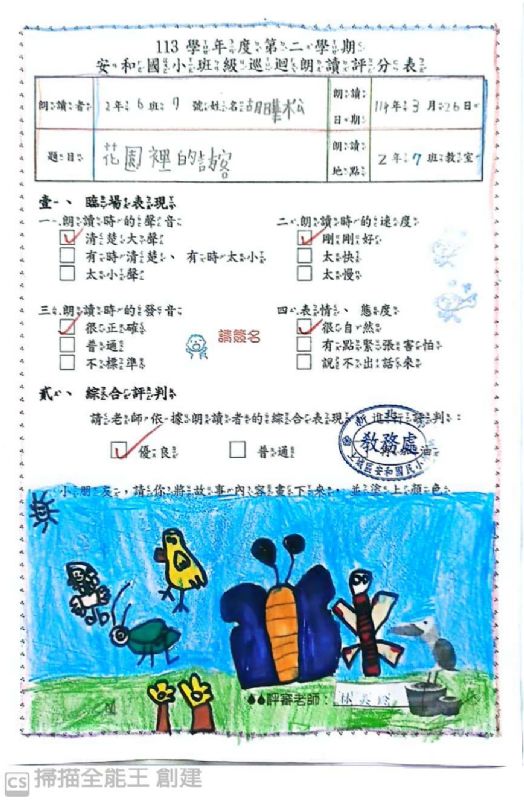 113學年度第二學期
安和國小班級巡迴朗讀評分表
朗讀者 2年6班7號姓名胡曄松
朗讀日期 114年3月26日
題目 花園裡的訪客
朗讀地點 2年7班教室
壹、臨場表現
一、朗讀時的聲音
清楚大聲
有時清楚、有時太小
太小聲
二、朗讀時的速度
剛剛好
太快
太慢
三、朗讀時的發音
很正確
普通
不標準
請簽名
四、表情、態度
很自然
有點緊張害怕
說不出話來
貳、綜合評判
請老師依據朗讀者的綜合表現進行評判：
優良
普通
油
教務處
土城區安和國民小
小朋友，請你將故事內容畫下來，並塗上顏色
評審老師：林
CS 掃描全能王 創建